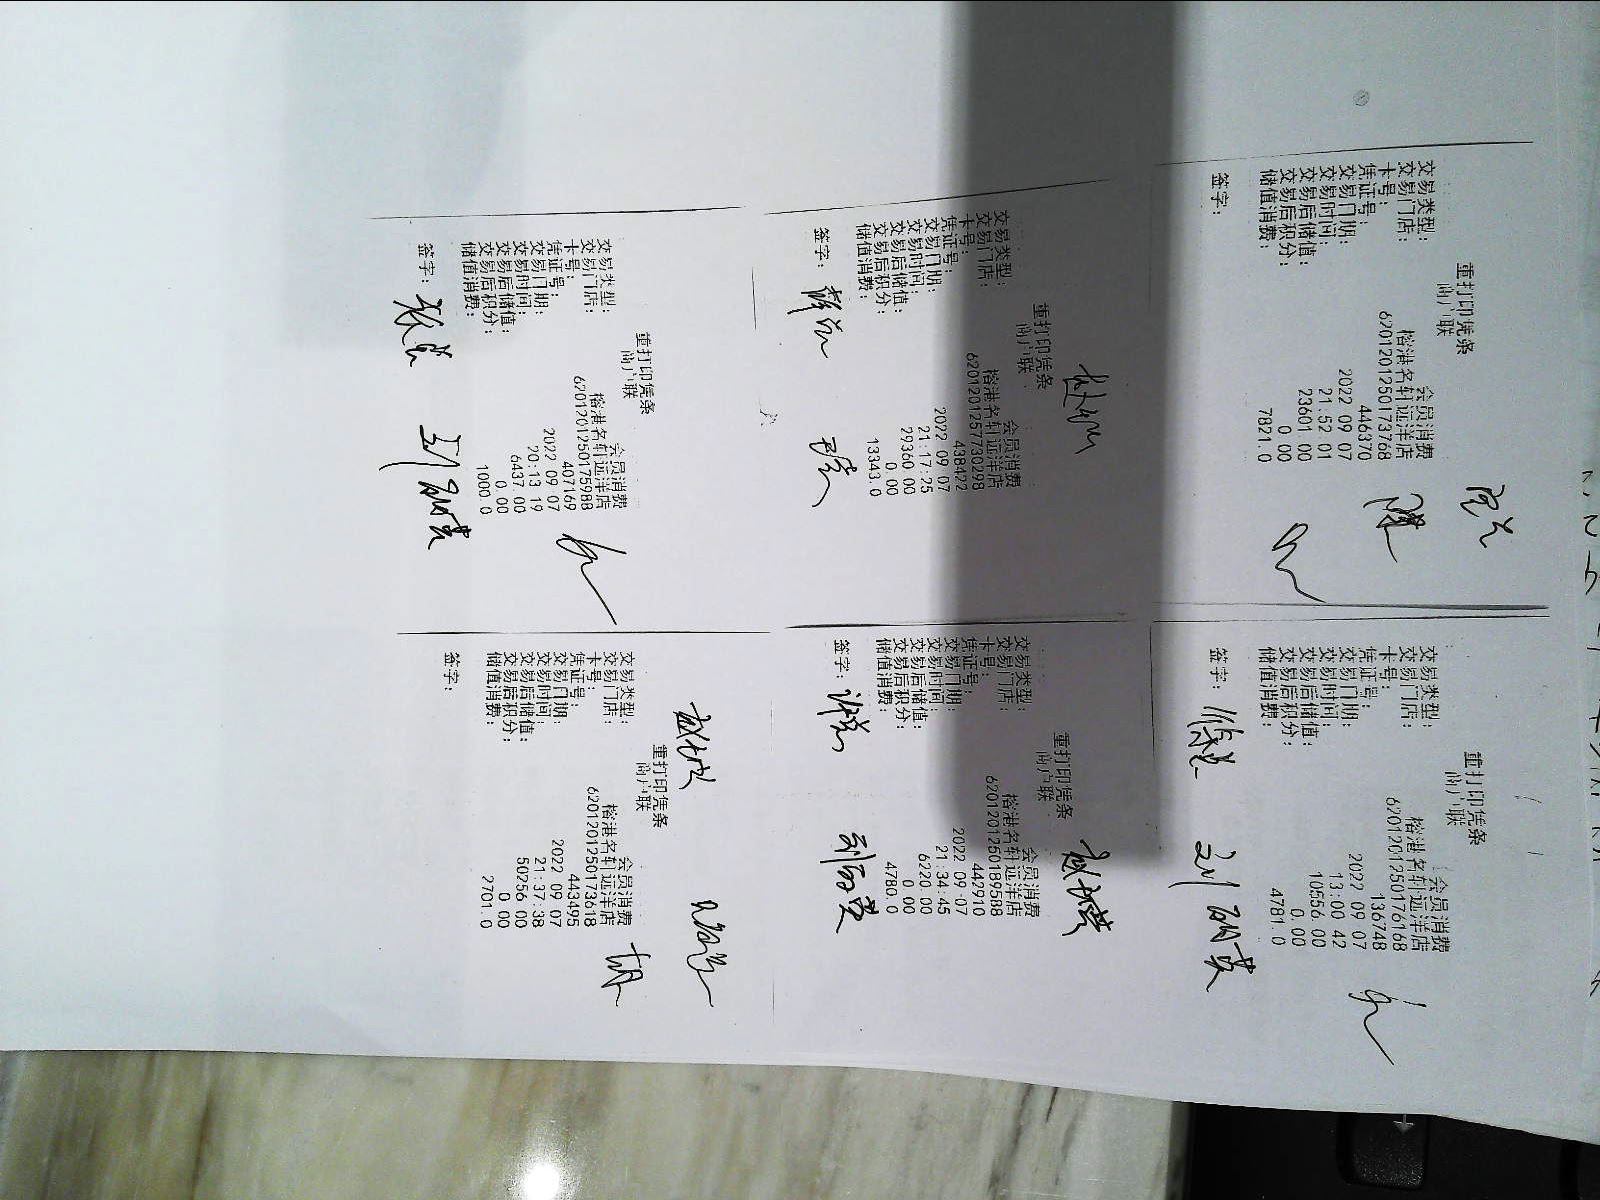 重打印凭条
商户联
交易类型: 会员消费
交易门店: 榕港名轩远洋店
卡号: 6201201250173768
凭证号: 446370
交易日期: 2022 09 07
交易时间: 21:52 01
交易后储值: 23601.00
交易后积分: 0.00
储值消费: 7821.0
签字:
重打印凭条
商户联
交易类型: 会员消费
交易门店: 榕港名轩远洋店
卡号: 6201201250176168
凭证号: 136748
交易日期: 2022 09 07
交易时间: 13:00 42
交易后储值: 10556 00
交易后积分: 0.00
储值消费: 4781.0
签字:
刘丽英
重打印凭条
商户联
交易类型: 会员消费
交易门店: 榕港名轩远洋店
卡号: 6201201257730298
凭证号: 438422
交易日期: 2022 09 07
交易时间: 21:17:25
交易后储值: 29360 00
交易后积分: 0 00
储值消费: 13343.0
签字:
重打印凭条
商户联
交易类型: 会员消费
交易门店: 榕港名轩远洋店
卡号: 6201201250189588
凭证号: 442910
交易日期: 2022 09·07
交易时间: 21:34:45
交易后储值: 6220 00
交易后积分: 0 00
储值消费: 4780.0
签字:
刘丽英
重打印凭条
商户联
交易类型: 会员消费
交易门店: 榕港名轩远洋店
卡号: 6201201250175988
凭证号: 407169
交易日期: 2022 09 07
交易时间: 20:13 19
交易后储值: 6437 00
交易后积分: 0.00
储值消费: 1000.0
签字:
刘丽英
重打印凭条
商户联
交易类型: 会员消费
交易门店: 榕港名轩远洋店
卡号: 6201201250173618
凭证号: 443495
交易日期: 2022 09 07
交易时间: 21:37:38
交易后储值: 50256 00
交易后积分: 0 00
储值消费: 2701.0
签字: